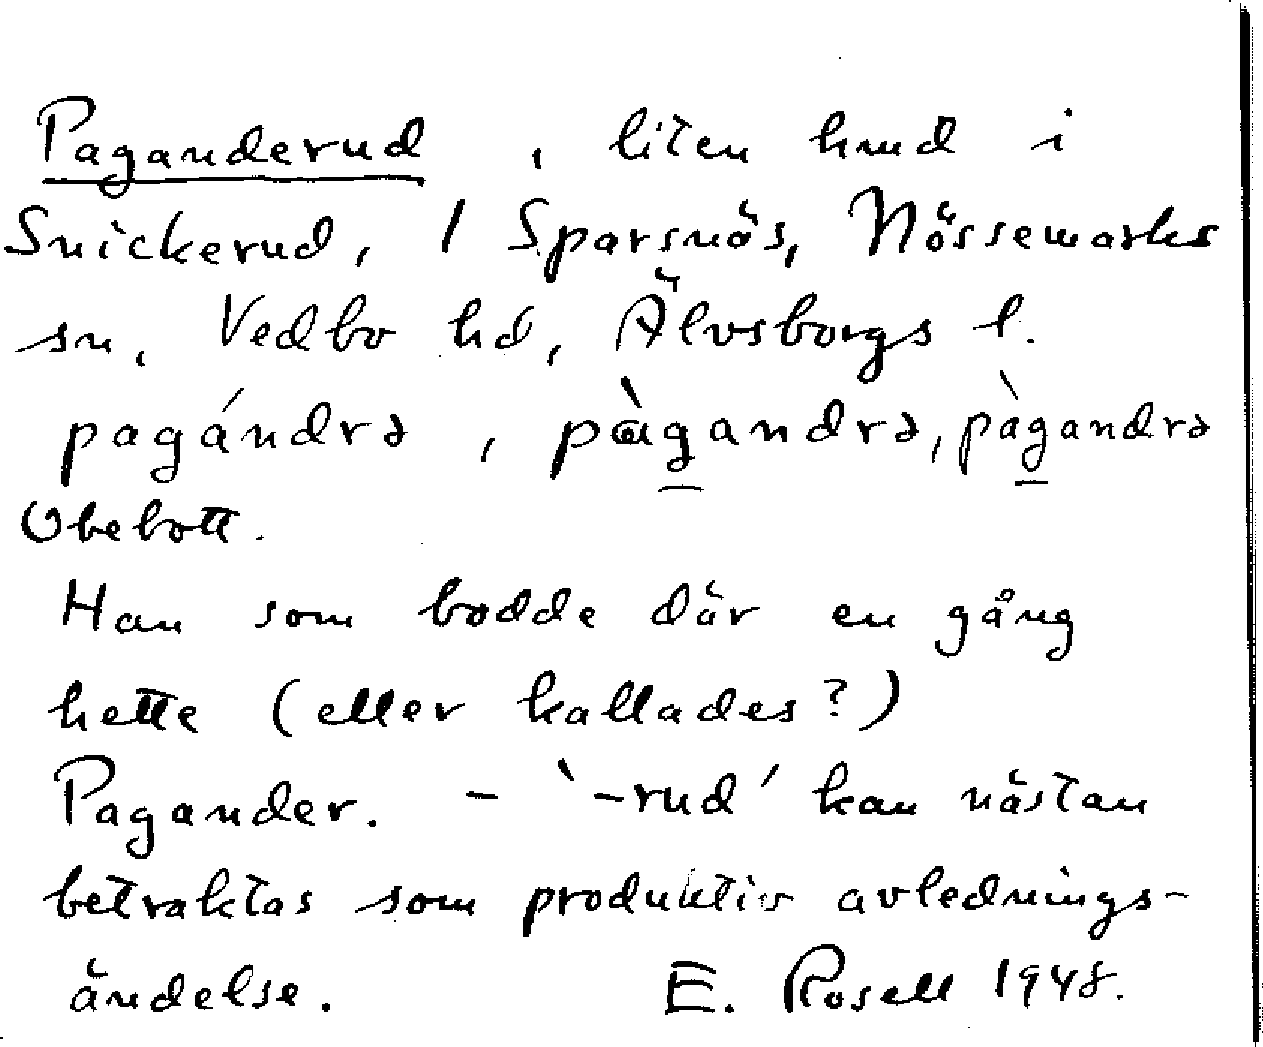 Paganderud, liten hmd i
Snickerud, 1 Sparsnäs, Nössemarks
sn, Vedbo hd, Älvsborgs l.
pagándrə, pàgandrə, pàgandrə
Obebott.
Han som bodde där en gång
hette (eller kallades?)
Pagander. - '-rud' kan nästan
betraktas som produktiv avlednings-
ändelse. E. Rosell 1948.